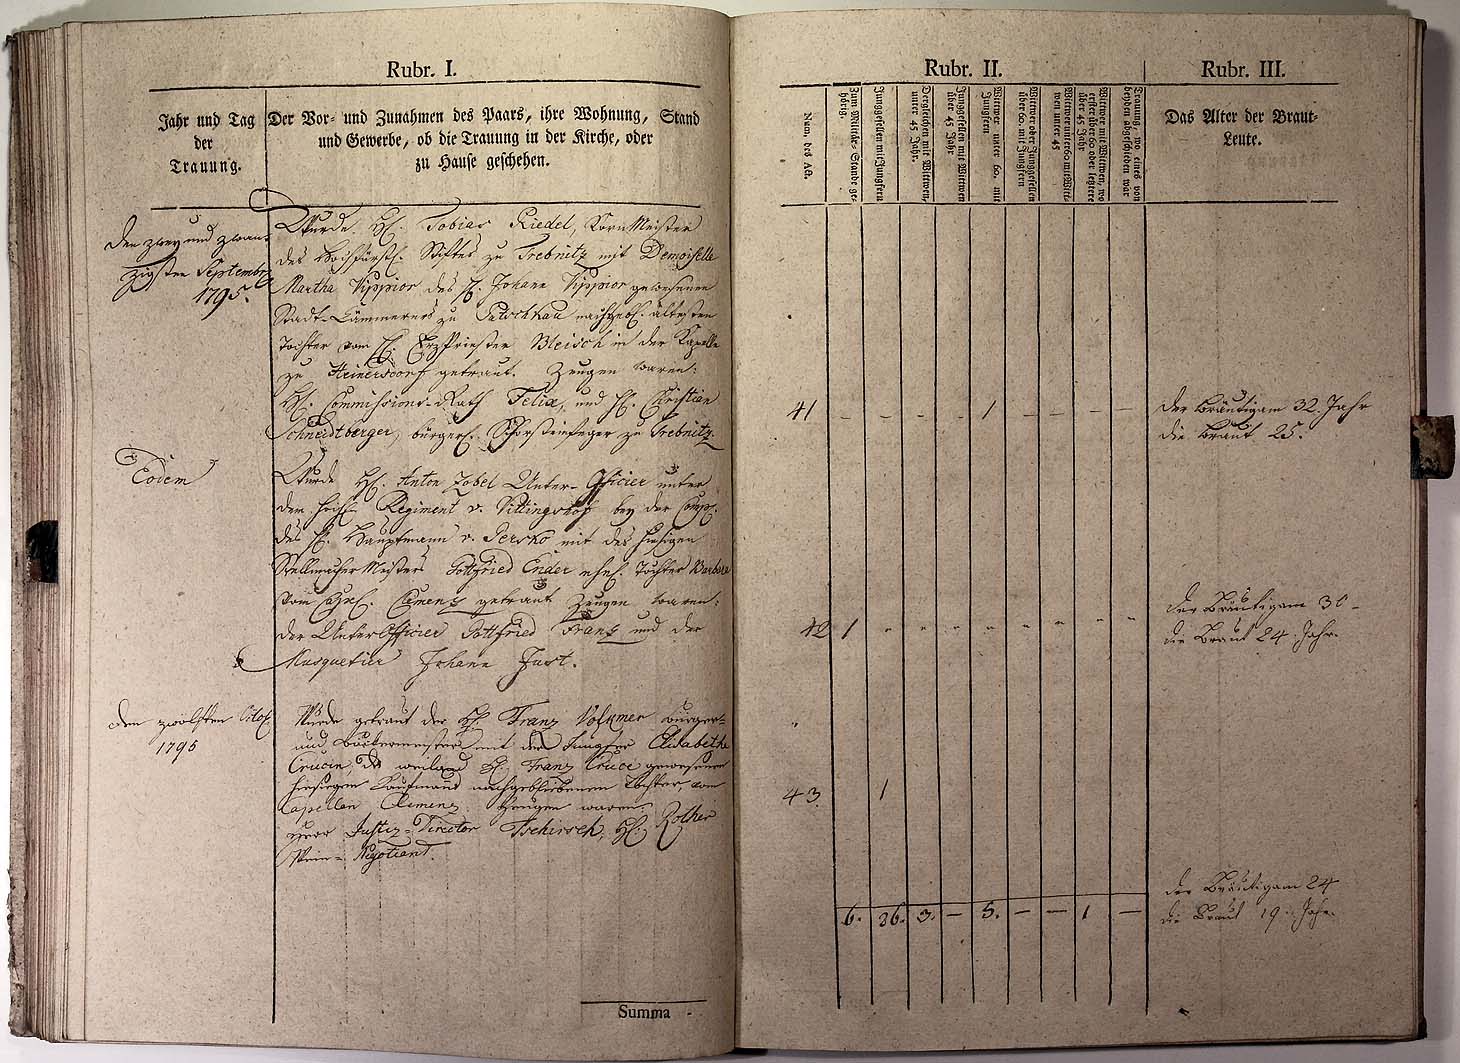 Rubr. I.
Jahr und Tag
der
Trauung.
Der Vor- und Zunahmen des Paars, ihre Wohnung, Stand
und Gewerbe, ob die Trauung in der Kirche, oder
zu Hause geschehen.
Den zwey und zwan-
zigsten Septembr.
1795.
Wurde H. Tobias Riedel, KornMeister
des Hochfürstl. Stiftes zu Trebnitz mit Demoiselle
Martha des H. Johann gewesenen
Stadt-Cämmerers zu Patschkau nachgel. ältesten
Tochter vom H. ErzPriester Bleisch in der Kapelle
zu Heinersdorf getraut. Zeugen waren:
H. Commissions-Rath Felix, und H. Christian
Schneidtberger, bürgerl. Schorsteinfeger zu Trebnitz.
Eodem
Wurde H. Anton Zobel Unter-Officier unter
dem Regiment v. bey der Comp.
des H. Hauptmann v. mit des hiesigen
Stellmacher Meisters Gottfried Ender ehel. Tochter Barbara
vom Clemens getraut Zeugen waren:
der UnterOfficier Gottfried Franz und der
Musquetier Johann Just.
den zwölften Octob.
1795
Wurde getraut der H. Franz Volkmer Bürger-
und Böckermeister mit der Jungfer Elisabetha
Crucin, des weiland H. Franz Cruce gewesenen
hiesigen Kaufmans nachgebliebenen Tochter, vom
Capellan Clemens. Zeugen waren:
Herr Justiz-Director Tschirsch, H. Rother
Wein-Negotiant.
Summa -
Rubr. II.
Num. des Act.
Zum Militär-Stande ge-
hörig.
Junggesellen mit Jungfern
Dergleichen mit Wittwen,
unter 45 Jahr.
Junggesellen mit Wittwen
über 45 Jahr
Wittwer unter 60. mit
Jungfern
Wittwer oder Junggesellen
über 60. mit Jungfern
Wittwer unter 60 mit Witt-
wen unter 45
Wittwer mit Wittwen, wo
erster über 60 oder letztere
über 45 Jahr
Trauung, wo eines von
beyden abgeschieden war
41 – – – – 1 – – – –
42 1 – – – – – – – –
43. 1
6. 36. 3. – 5. – – 1 –
Rubr. III.
Das Alter der Braut-
Leute.
der Bräutigam 32. Jahr
die Braut 25.
der Bräutigam 30 –
die Braut 24. Jahr.
der Bräutigam 24
die Braut 19. Jahr.